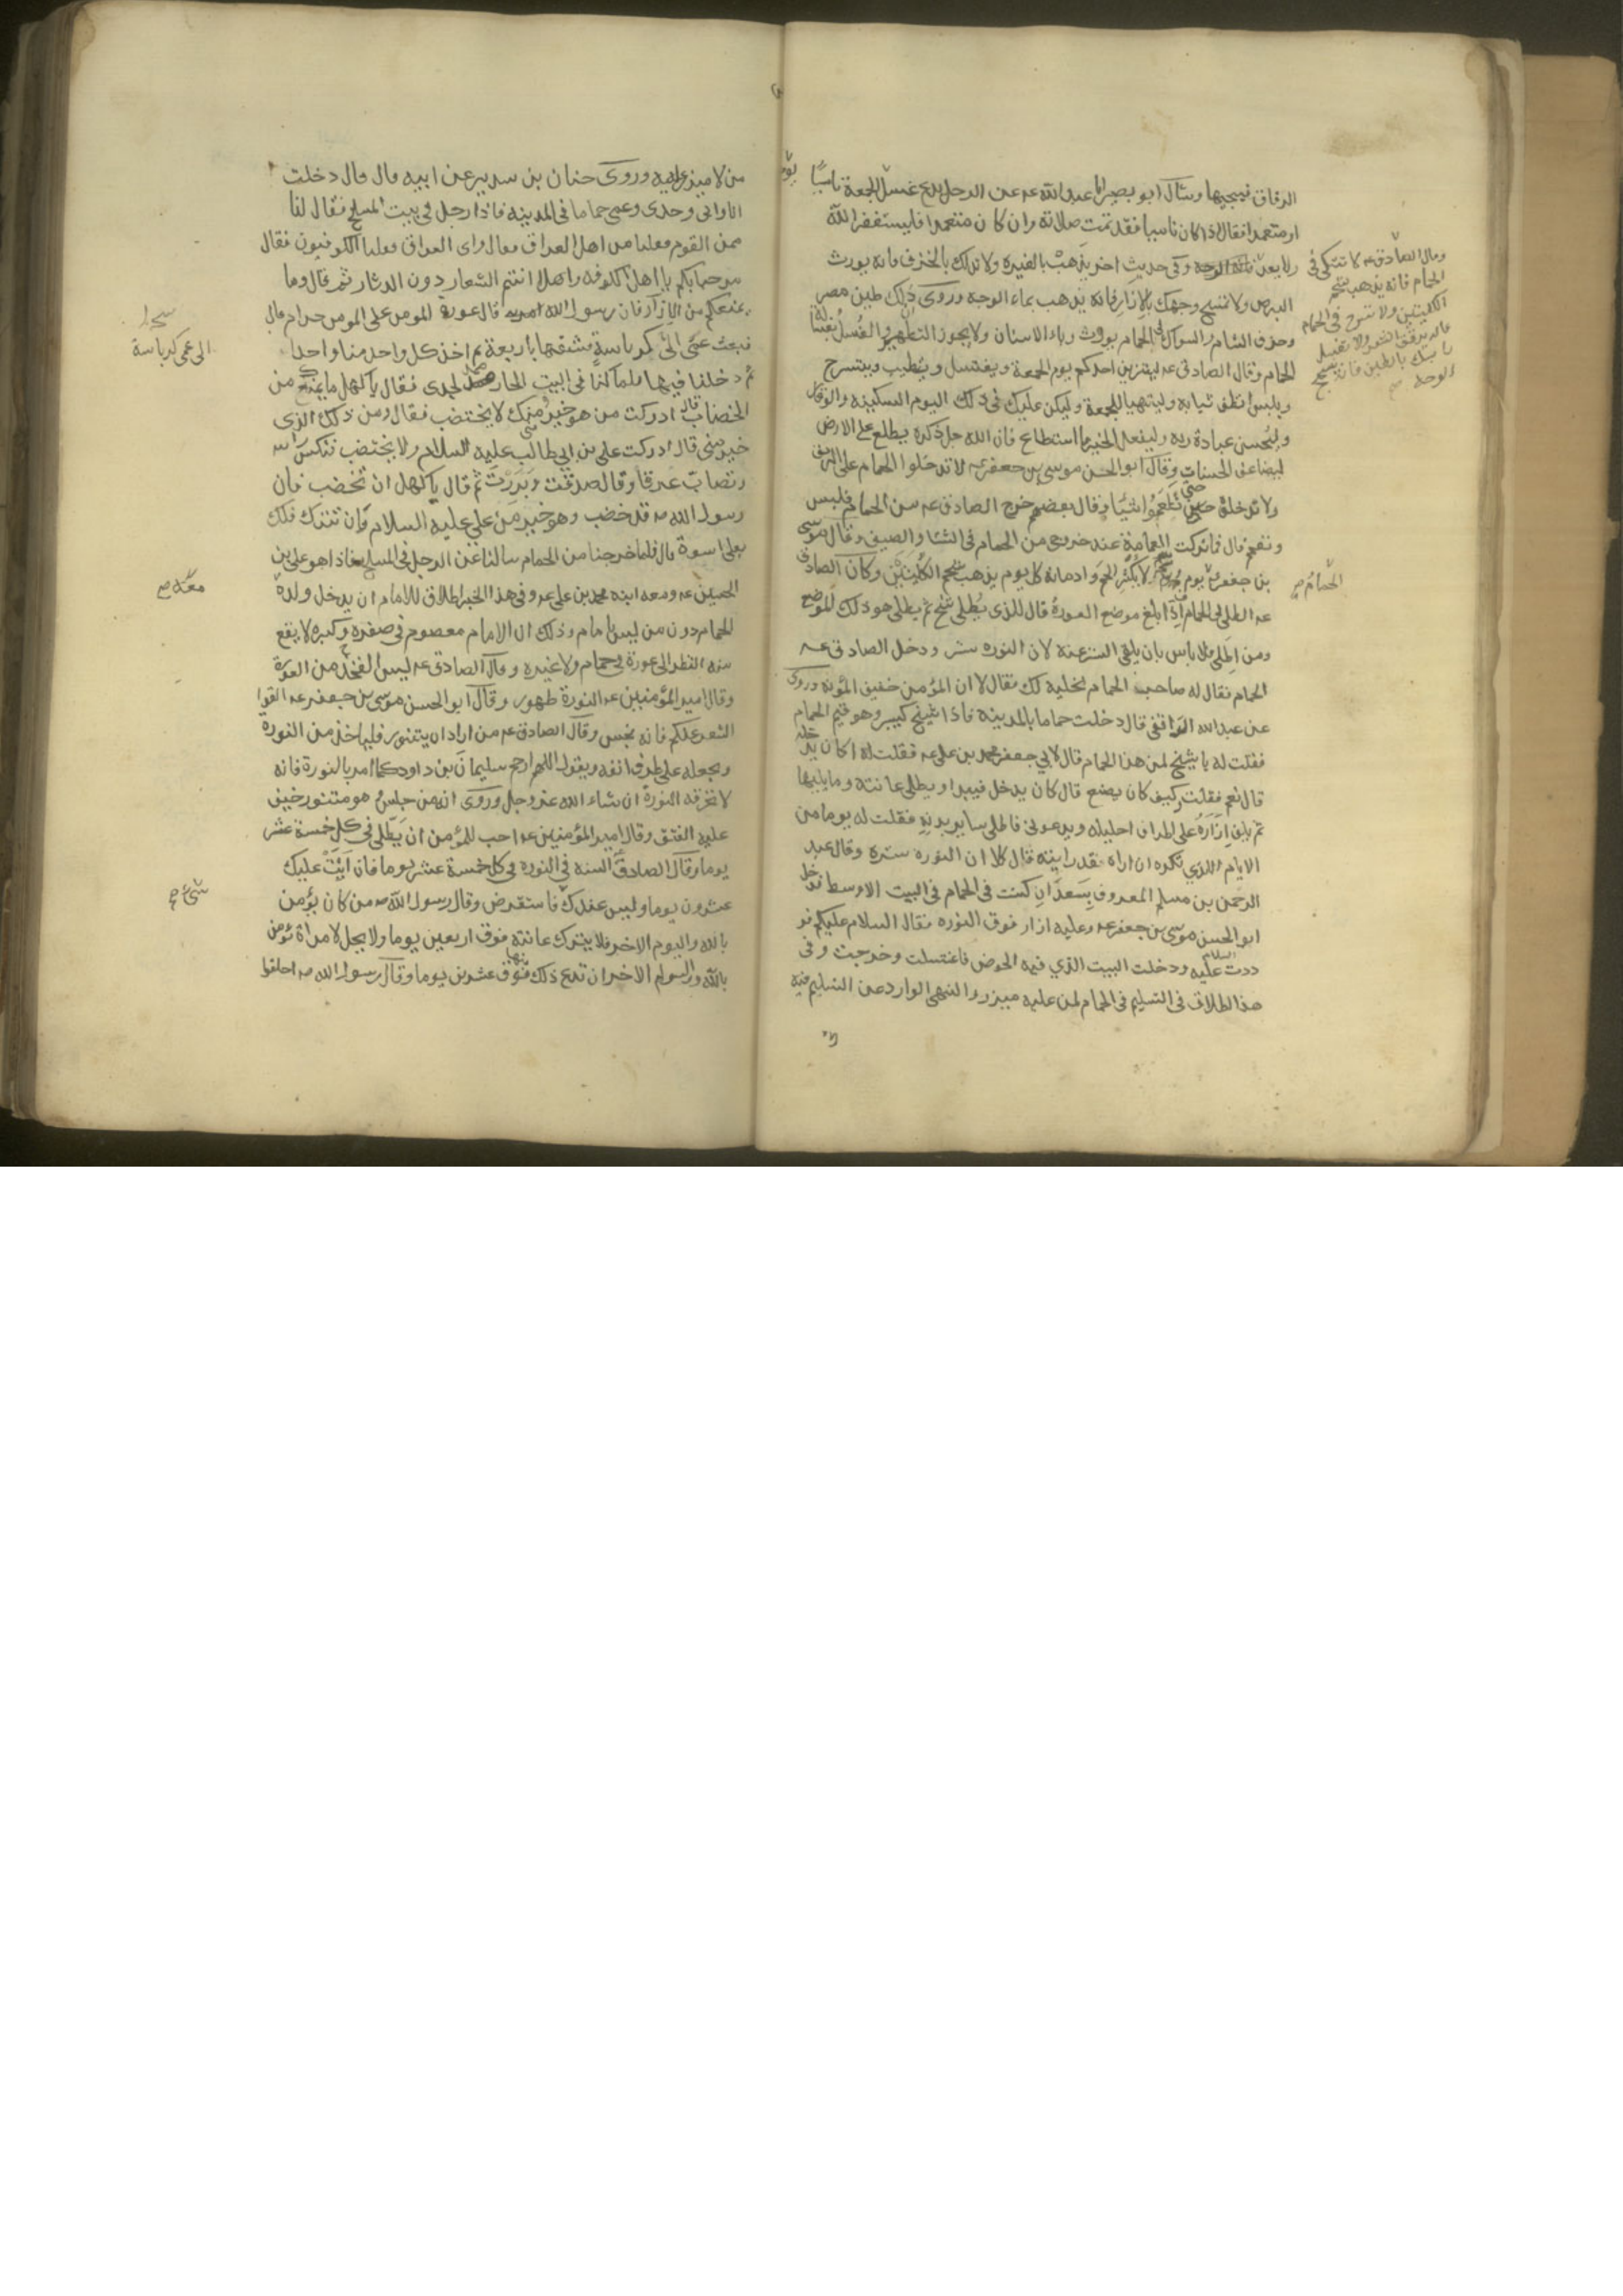 الزقاق فيجيبها وسال ابو بصير ابا عبد الله عه عن الرجل يدع غسل الجمعة ناسيا
او متعمدا فقال اذا كان ناسيا فقد تمت صلاته وان كان متعمدا فليستغفر الله
ولا يعد وفي حديث اخر يذهب بالغيرة ولا تدلك بالخزف فانه يورث
البرص ولا تمسح وجهك بالازار فانه يذهب بماء الوجه وروى ذلك طين مصر
وخزف الشام والسواك في الحمام يورث وباء الاسنان ولا يجوز التطهير والغسل بغسالة
الحمام وقال الصادق عه ليتزين احدكم يوم الجمعة ويغتسل ويتطيب ويتسرح
ويلبس انظف ثيابه وليتهيا للجمعة وليكن عليك في ذلك اليوم السكينة والوقار
وليحسن عبادة ربه وليفعل الخير ما استطاع فان الله جل ذكره يطلع على الارض
ليضاعف الحسنات وقال ابو الحسن موسى بن جعفر عه لا تدخلوا الحمام على الريق
ولا تدخلوه حتى تطعموا شيئا وقال بعضهم خرج الصادق عه من الحمام فلبس
وتعمم قال فما تركت العمامة عند خروجي من الحمام في الشتا والصيف وقال موسى
بن جعفر يوم ويوم لا يكثر اللحم وادمانه كل يوم يذهب شحم الكليتين وكان الصادق
عه اطلى في الحمام فاذا بلغ موضع العورة قال للذى يطلى تنح ثم يطلى هو ذلك الموضع
ومن اطلى فلا باس بان يلقى الستر عنه لان النوره ستر ودخل الصادق عه
الحمام فقال له صاحب الحمام نخليه لك فقال لا ان المؤمن خفيف المؤنه وروى
عن عبد الله الرافقى قال دخلت حماما بالمدينة فاذا شيخ كبير وهو قيم الحمام
فقلت له يا شيخ لمن هذا الحمام قال لابي جعفر محمد بن على عه فقلت له اكان يدخله
قال نعم فقلت كيف كان يصنع قال كان يدخل فيبدا ويطلى عانته وما يليها
ثم يلف ازاره على اطراف احليله ويدعونى فاطلى ساير بدنه فقلت له يوما من
الايام الذي تكره ان اراه فقد رايته قال كلا ان النوره ستره وقال عبد
الرحمن بن مسلم المعروف بسعدان كنت في الحمام في البيت الاوسط فدخل
ابو الحسن موسى بن جعفر عه وعليه ازار فوق النوره فقال السلام عليكم فر
ددت عليه السلام ودخلت البيت الذي فيه الحوض فاغتسلت وخرجت وفى
هذا اطلاق في التسليم في الحمام لمن عليه ميزر والنهى الوارد عن التسليم فيه
وقال الصادق عه لا تتكى في
الحمام فانه يذهب شحم
الكليتين ولا تسرح في الحمام
فانه يرقق الشعر ولا تغسل
راسك بالطين فانه يسمج
الوجه
الحمام
من لا ميزر عليه وروى حنان بن سدير عن ابيه قال قال دخلت
انا وابى وجدى وعمى حماما في المدينه فاذا رجل في بيت المسلخ فقال لنا
ممن القوم فقلنا من اهل العراق فقال واى العراق فقلنا الكوفيون فقال
مرحبا بكم يا اهل الكوفه واهلا انتم الشعار دون الدثار ثم قال وما
يمنعكم من الازار فان رسول الله قال عورة المومن على المومن حرام قال
فبعث عمى الى كرباسة فشقها باربعة ثم اخذ كل واحد منا واحدا
ثم دخلنا فيها فلما كنا في البيت الحار صمد لجدى فقال يا كهل ما يمنعك من
الخضاب قال ادركت من هو خير منك لا يختضب فقال ومن ذلك الذى
خير منى قال ادركت على بن ابي طالب عليه السلام ولا يختضب فنكس راسه
وتصاب عرقا وقال صدقت وبررت ثم قال يا كهل ان تخضب فان
رسول الله قد خضب وهو خير من على عليه السلام وان تترك فلك
بعلى اسوة قال فلما خرجنا من الحمام سالنا عن الرجل في المسلخ فاذا هو على بن
الحسين عه ومعه ابنه محمد بن على عه وفي هذا الخبر اطلاق للامام ان يدخل ولده
الحمام دون من ليس بامام وذلك ان الامام معصوم في صغره وكبره لا يقع
منه النظر الى عورة في حمام ولا غيره وقال الصادق عه ليس الفخذ من العورة
وقال امير المؤمنين عه النورة طهور وقال ابو الحسن موسى بن جعفر عه القوا
الشعر عنكم فانه نجس وقال الصادق عه من اراد ان يتنور فلياخذ من النورة
ويجعله على طرف انفه ويقول اللهم ارحم سليمان بن داود كما امر بالنورة فانه
لا تحرقه النورة ان شاء الله عز وجل وروى ان من جلس وهو متنور خيف
عليه الفتق وقال امير المؤمنين عه احب للمؤمن ان يطلى في كل خمسة عشر
يوما وقال الصادق السنه في النوره في كل خمسة عشر يوما فان اتت عليك
عشرون يوما وليس عندك فاستقرض وقال رسول الله من كان يؤمن
بالله واليوم الاخر فلا يترك عانته فوق اربعين يوما ولا يحل لامراة تؤمن
بالله واليوم الاخر ان تدع ذلك منها فوق عشرين يوما وقال رسول الله احلقوا
الى عمى كرباسة
معه
شئ